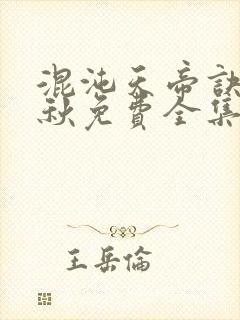 混沌天帝訣
秋免費全集
王岳倫